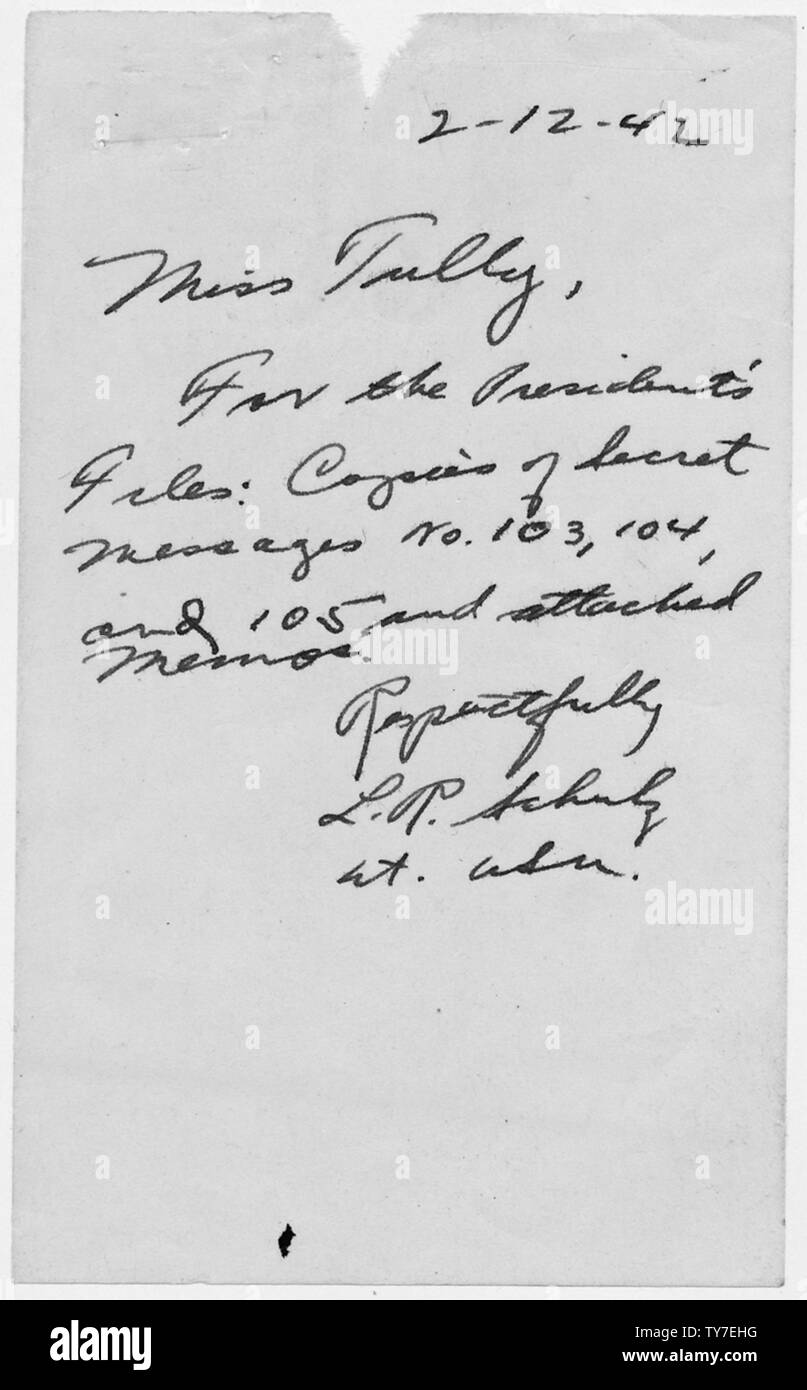 2-12-42
Miss Tully,
For the President's
Files: Copies of Secret
Messages No. 103, 104,
and 105 and attached
Memos.
Respectfully
L.R. Schulz
Lt. USN.
alamy
alamy
alamy
a
alamy
Image ID: TY7EHG
www.alamy.com